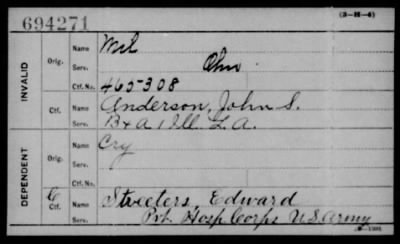 694271
(3-H-6)
INVALID
Orig.
Name
Serv.
Ctf. No. 465308
Ctf.
Name Anderson, John S.
Serv. B & A 1 Ill. L. A.
DEPENDENT
Orig.
Name
Serv.
Ctf. No.
C
Ctf.
Name Streeters, Edward
Serv. Pvt. Hosp. Corps U.S. Army